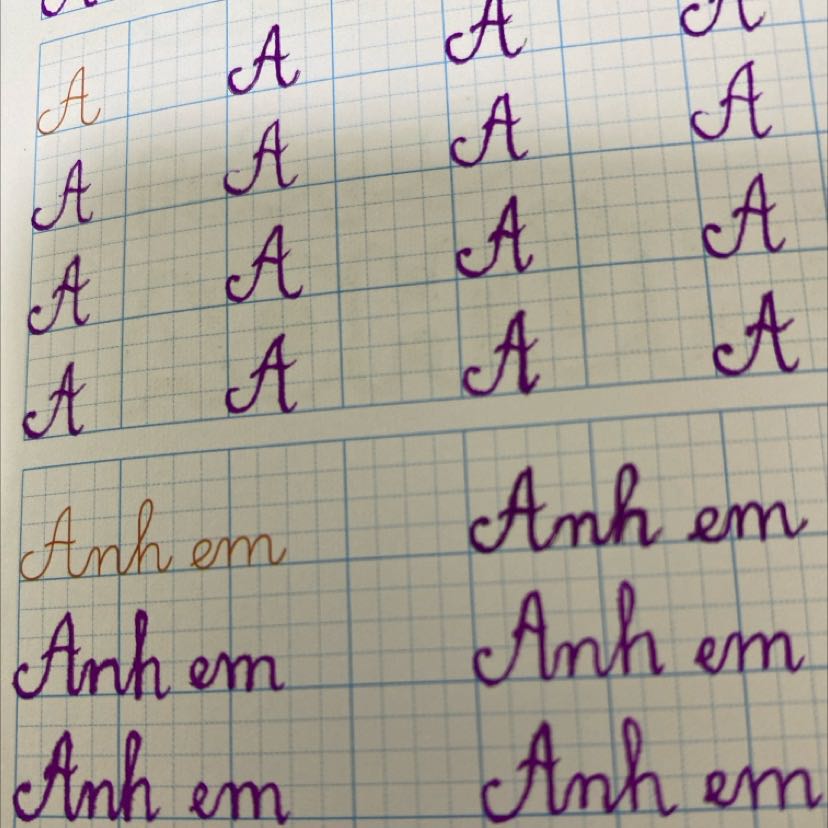 A A A A
A A A A
A A A A
A A A A
Anh em Anh em
Anh em Anh em
Anh em Anh em